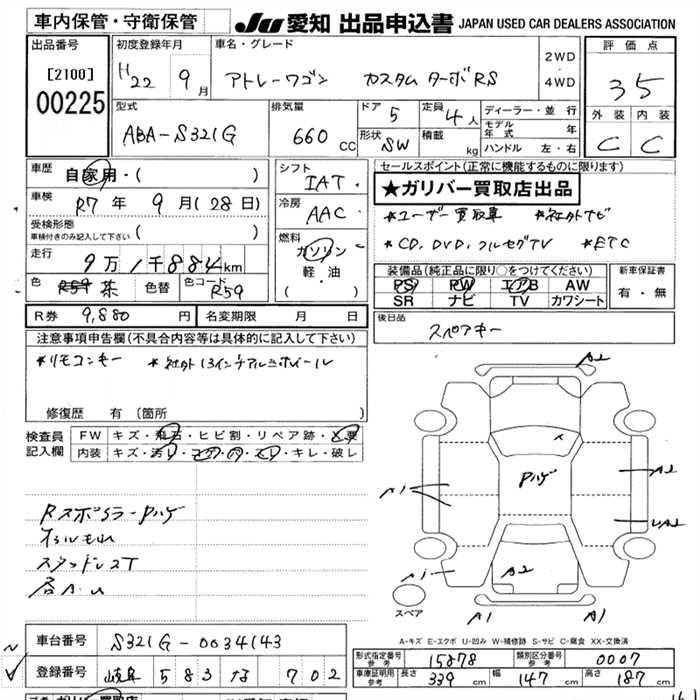 車内保管・守衛保管
JU 愛知 出品申込書 JAPAN USED CAR DEALERS ASSOCIATION
出品番号
[2100]
00225
初度登録年月
H22 9月
車名・グレード
アトレーワゴン カスタムターボRS
2WD
・
4WD
評価点
3.5
外装 内装
C C
型式
ABA-S321G
排気量
660 CC
ドア 5
定員 4人
形状 SW
積載 kg
ディーラー・並行
モデル年式 年
ハンドル 左・右
車歴 自家用・( )
車検 R7年 9月(28日)
受検形態
車検付きのみ記入して下さい ( )
走行 9万1千884km
色 R59 茶 色替 色コード R59
シフト
IAT
冷房
AAC
燃料
ガソリン
軽・油
( )
セールスポイント(正常に機能するものに限ります)
★ガリバー買取店出品
*ユーザー買取車 *社外ナビ
*CD, DVD, フルセグTV *ETC
装備品(純正品に限り○をつけてください)
PS PW エアB AW
SR ナビ TV カワシート
新車保証書
有・無
R券 9,880円 名変期限 月 日
後日品
スペアキー
注意事項申告欄(不具合内容等は具体的に記入して下さい)
*リモコンキー *社外13インチアルミホイール
修復歴 有(箇所 )
検査員記入欄
FW キズ・飛石・ヒビ割・リペア跡・交要
内装 キズ・汚れ・コゲ・穴・スレ・キレ・破レ
Rスポイラーハゲ
スタッドレスT
A2
ハゲ
A2
A1
A1
A2
A1
A1
スペア
A-キズ E-エクボ U-凹み W-補修跡 S-サビ C-腐食 XX-交換済
車台番号 S321G-0034143
登録番号 岐阜 583 な 702
形式指定番号
参考
15878
類別区分番号
参考
0007
車庫証明用
参考
長さ 339 幅 147 高さ 187